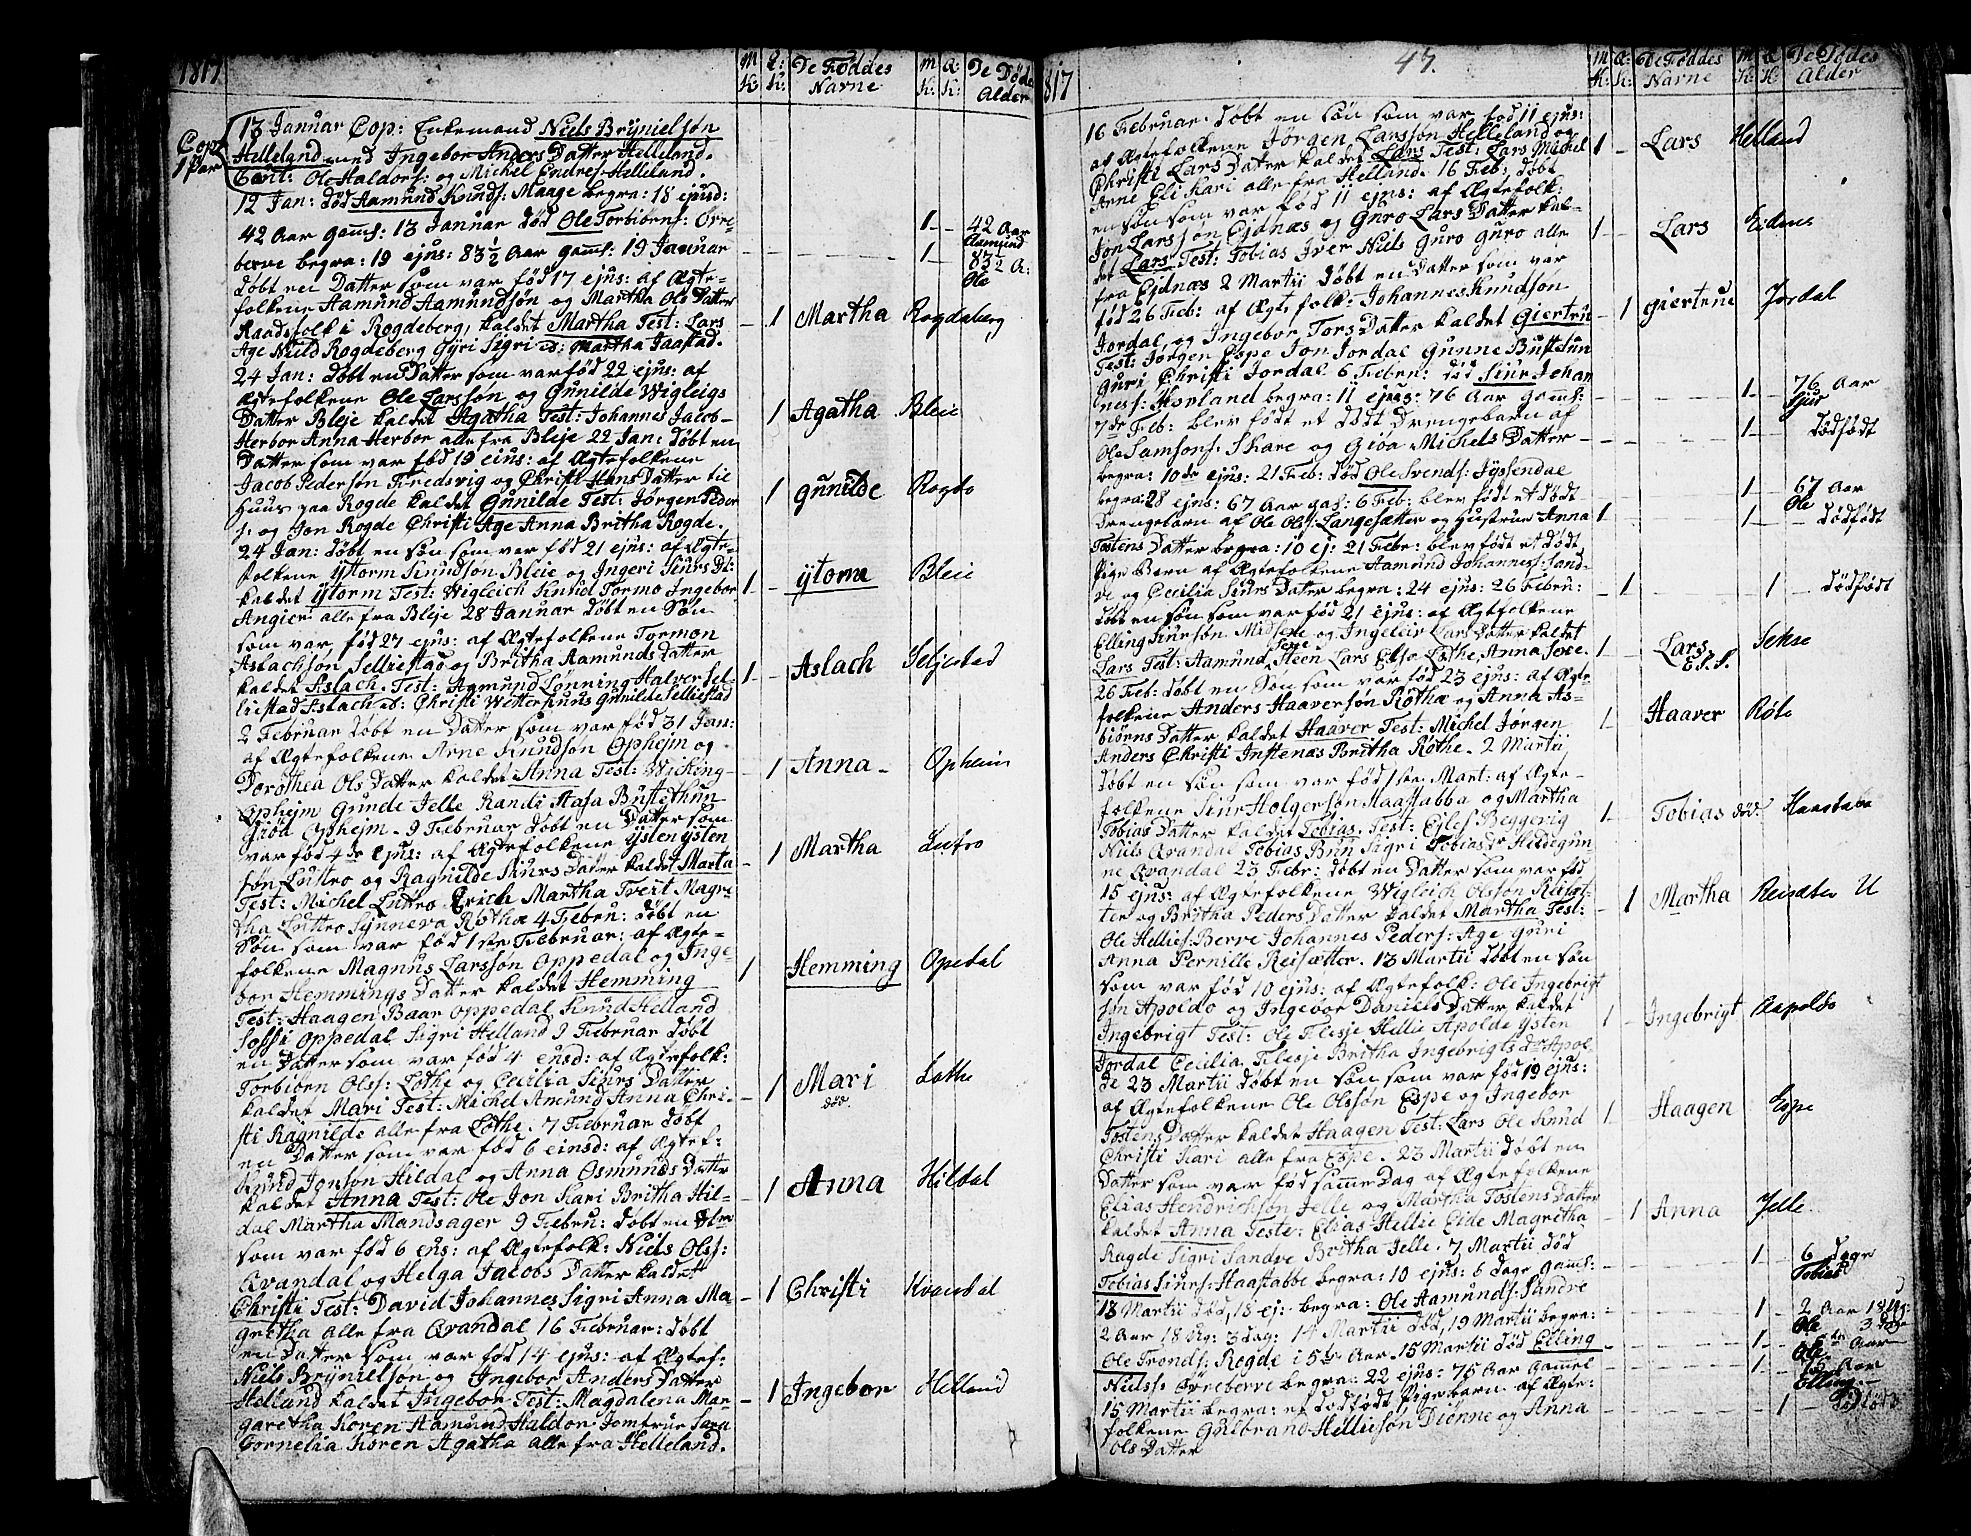 1817
M K: Q: K: De Føddes Navne m K: Q: K: De Døde Alder
Cop: 1 Par
13 Januar Cop: Enkemand Niels Brynielsøn
Helleland med Ingebor Anders Datter Helleland.
Cavt: Ole Haldors: og Michel Endres: Helleland.
12 Jan: død Aamund Knuds: Maage begra: 18 ejusd:
42 Aar gams: 13 Januar død Ole Torbiørns: Øvre- 1 42 Aar Aamund
berve begra: 19 ejus: 83½ Aar gams: 19 Januar 1 83½ A: Ole
døbt en Datter som var fød 17 ejus: af Ægte-
folkene Aamund Aamundsøn og Martha Ols Datter
Raadsfolk i Rogdeberg, kaldet Martha Test: Lars 1 Martha Rogdeberg
Age Niels Rogdeberg Gyri Sigri ib: Martha Jaastad.
24 Jan: døbt en Datter som var fød 22 ejus: af
Ægtefolkene Ole Larssøn og Gunilde Wigleigs
Datter Bleje kaldet Agatha Test: Johannes Jacob 1 Agatha Bleie
Herbor Anna Herbor alle fra Bleje 22 Jan: døbt en
Datter som var fød 19 ejus: af Ægtefolkene
Jacob Pedersøn Fredsvig og Christi Hans Datter til
Huus paa Rogde kaldet Gunilde Test: Jørgen Peder 1 Gunilde Rogde
s: og Jon Rogde Christi Age Anna Britha Rogde.
24 Jan: døbt en søn som var fød 21 ejus: af Ægte-
folkene Ystorm Knudsøn Bleie og Ingeri Siurs Dt:
kaldet Ystorm Test: Wigleich Tormo Ingebor 1 Ystorm Bleie
Angier alle fra Bleje 28 Januar døbt en Søn
som var fød 27 ejus: af Ægtefolkene Tormon
Aslachsøn Selliestad og Britha Aamunds Datter
kaldet Aslach. Test: Aamund Lønning Halver Sel- 1 Aslach Seljestad
liestad Aslach ib: Christi Wetterhuns Gunilde Selliestad
2 Februar døbt en Datter som var fød 31 Jan:
af Ægtefolkene Arne Knudsøn Ophejm og
Dorothea Ols Datter kaldet Anna Test: Wicking 1 Anna Opheim
Ophejm Gunde Jelle Randi Aasa Bustethun
Giøa Ophejm. 9 Februar døbt en Datter som
var fød 4de ejus: af Ægtefolkene Ysten Ysten
søn Luttro og Ragnilde Siurs Datter kaldet Marta 1 Martha Lutro
Test: Michel Luttro Erich Martha Tveit Magre-
tha Luttro Synneva Røthæ 4 Febru: døbt en
Søn som var fød 1ste Februar: af Ægte-
folkene Magnus Larssøn Oppedal og Inge-
bor Hemmings Datter kaldet Hemming 1 Hemming Opedal
Test: Haagen Baar Oppedal Knud Helland
Sossi Oppedal Sigri Helland 9 Februar døbt
en Datter som var fød 4 ensd: af Ægtefolk:
Torbiørn Olss: Lothe og Cecilia Siurs Datter
kaldet Mari Test: Michel Amund Anna Chri- 1 Mari død. Lothe
sti Ragnilde alle fra Lothe. 7 Februar døbt
en Datter som var fød 6 einsd: af Ægtef:
Knud Jonsøn Hildal og Anna Osmunds Datter
kaldet Anna Test: Ole Jon Kari Britha Hil- 1 Anna Hildal
dal Martha Mandsager 9 Febru: døbt en
som var fød 6 ejus: af Ægtefolk: Niels Olss:
Qvandal og Helga Jacobs Datter kaldet
Christi Test: David Johannes Sigri Anna Ma 1 Christi Kvandal
gretha alle fra Qvandal 16 Februar: døbt
en Datter som var fød 14 ejus: af Ægtef:
Niels Brynielsøn og Ingebor Anders Datter
Helland kaldet Ingebor Test: Magdalena Mar- 1 Ingebor Helland
garetha Koren Aamund Haldor: Jomfrue Sara
Cornelia Koren Agatha alle fra Helleland.
817
47.
M K: Q: K: De Føddes Navne M K: Q K: De Dødes Alder
16 Februar døbt en søn som var fød 11 ejus:
af Ægtefolkene Jørgen Larssøn Helleland og
Christi Lars Datter kaldet Lars Test: Lars Michel 1 Lars Helland
Arne Eli Kari alle fra Helland. 16 Feb: døbt
en søn som var fød 11 ejus: af Ægtefolk:
Jon Larssøn Ejdnæs og Guro Lars Datter kal-
det Lars Test: Tobias Iver Niels Guro Guro alle 1 Lars Eidnes
fra Ejdnæs 2 Martii døbt en Datter som var
fød 26 Feb: af Ægtefolk: Johannes Knudsøn
Jordal, og Ingebor Tors Datter kaldet Giertru 1 Giertrue Jordal
Test: Jørgen Espe Jon Jordal Gunne Bustetun
Guri Christi Jordal 6 Febru: død Siur Johan
ness: begra: 11 ejus: 76 Aar gams: 1 76 Aar Sjur
7de Feb: blev født et dødt Drengebarn af
Ole Samsons: Skare og Giøa Michels Datter 1 dødfødt
begra: 10de ejus: 21 Feb: død Ole Svends: Jyssendal
begra: 28 ejus: 67 Aar gas: 6 Feb: blev født et dødt 1 67 Aar Ole
Drengebarn af Ole Ols: Langesætter og Hustrue Anna 1 1 dødfødt
Tostens Datter begra: 10 ej: 21 Febr: blev født et dødt
Pige Barn af Ægtefolkene Aamund Johanness: Sand-
ve og Cecilia Siurs Datter begra: 24 ejus: 26 Febru: 1 1 dødfødt
døbt en søn som var fød 21 ejus: af Ægtefolkene
Elling Siursøn Midsexe og Ingeleiv Lars Datter kaldet
Lars Test: Aamund Sexe, Steen Lars Elsa Lothe, Anna Sexe. 1 Lars E.S.S. Sekse
26 Feb: døbt en Søn som var fød 23 ejus: af Ægte
folkene Anders Haaversøn Røthæ og Anna As-
biørns Datter kaldet Haaver Test: Michel Jørgen 1 Haaver Røte
Anders Christi Instenæs Britha Røthe. 2 Martii
døbt en søn som var fød 1ste Mart: af Ægte-
folkene Siur Holgersøn Haastabba og Martha
Tobias Datter kaldet Tobias. Test: Ejlef Beggevig 1 Tobias død. Haastabe
Niels Qvandal Tobias Bun Sigri Tobiasdr Hildegun-
ne Qvandal 23 Febr: døbt en Datter som var fød
15 ejus: af Ægtefolkene Wigleich Olssøn Reisæt-
ter og Britha Peders Datter kaldet Martha Test: 1 Martha Reisæter U
Ole Hellies: Berve Johannes Peders: Age Guri
Anna Pernille Reisætter. 13 Martii døbt en søn
som var fød 10 ejus: af Ægtefolk: Ole Ingebrigt
søn Apoldo og Ingebor Daniels Datter kaldet
Ingebrigt Test: Ole Flesje Hellie Apolde Ysten 1 Ingebrigt Aapoldo
Jordal Cecilia Flesje Britha Ingebrigts dr Apol-
de 23 Martii døbt en søn som var fød 19 ejus:
af Ægtefolkene Ole Olssøn Espe og Ingebor
Tostens Datter kaldet Haagen Test: Lars Ole Knud 1 Haagen Espe
Christi Kari alle fra Espe. 23 Martii døbt en
Datter som var fød samme Dag af Ægtefolkene
Elias Hendrichsøn Jelle og Martha Tostens Datter
kaldet Anna Teste: Elias Hellie Eide Magretha 1 Anna Jelle
Rogde Sigri Sandve Britha Jelle. 7 Martii død
Tobias Siurs: Haastabbe begra: 10 ejus: 6 dage gams: 1 6 dage Tobias
13 Martii død, 18 ej: begra: Ole Aamunds: Sandve 1 2 Aar 18 Ug: 3 dage Ole
2 Aar 18 Ug: 3 dag: 14 Martii død, 19 Martii begra:
Ole Tronds: Rogde i 5te Aar 15 Martii død Elling 1 5te Aar Ole
Nielss: Øvreberve begra: 22 ejus: 75 Aar gamel 1 75 Aar Elling
15 Martii begra: et dødfødt Pigebarn af Ægte- 1 dødfødt
folkene Gulbrand Helliesøn Diønne og Anna
Ols Datter